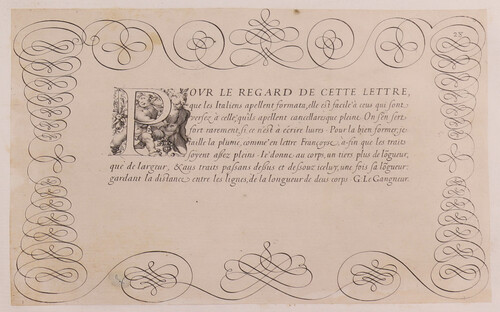 28
POVR LE REGARD DE CETTE LETTRE,
que les Italiens apellent formata, elle est facile à ceus qui sont
versez à celle, qu'ils apellent cancellaresque pleine. On s'en sert
fort rarement, si ce n'est à écrire liures. Pour la bien former, je
taille la plume, comm'en lettre Françoyse, à fin que les traits
soyent aßez pleins. Ie donne au corps, un tiers plus de lõgueur,
que de largeur, & aus traits paßans deßus et deßouz iceluy, une fois sa lõgueur:
gardant la distance entre les lignes, de la longueur de deus corps. G. Le Gangneur.